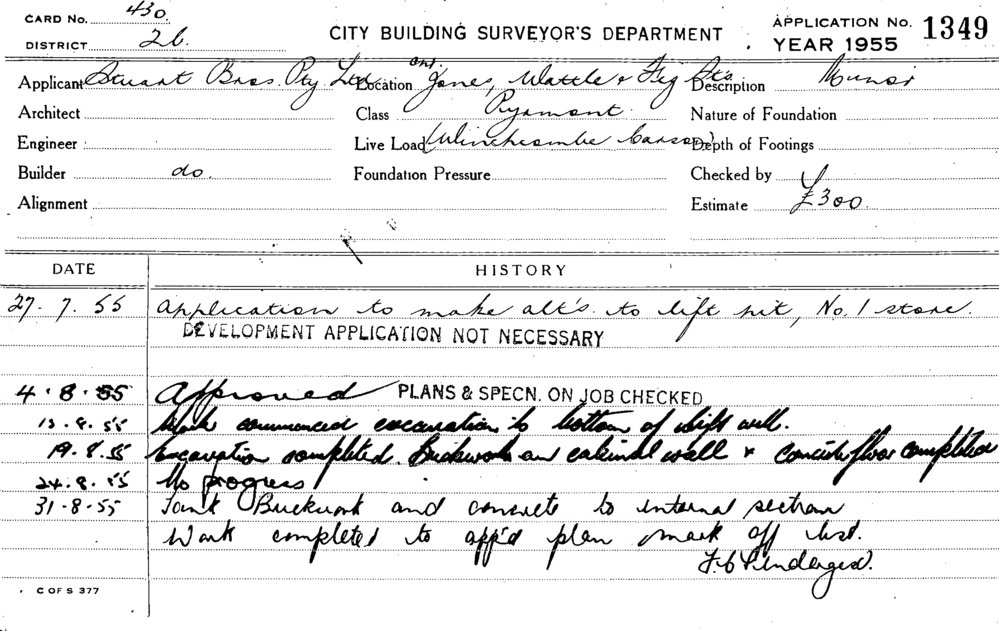 CARD No. 430. CITY BUILDING SURVEYOR'S DEPARTMENT APPLICATION No. 1349
DISTRICT 2b. YEAR 1955
Applicant Stuart Bros. Pty. Ltd. Location Jones, Wattle & Fig Sts Description Minor
Architect Class Pyrmont. Nature of Foundation
Engineer Live Load (Winchcombe Carson) Depth of Footings
Builder do. Foundation Pressure Checked by
Alignment Estimate £300.
DATE HISTORY
27. 7. 55 Application to make alt's. to lift pit, No. 1 store.
DEVELOPMENT APPLICATION NOT NECESSARY
4. 8. 55 Approved PLANS & SPECN. ON JOB CHECKED
13. 8. 55 Work commenced excavation to bottom of lift well.
19. 8. 55 Excavation completed. Brickwork on external wall & concrete floor completed
24. 8. 55 No progress
31-8-55 Tank Brickwork and concrete to internal section
Work completed to app'd plan mark off list.
C OF S 377